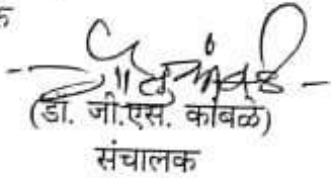 (डॉ. जी.एस. कांबळे)
संचालक